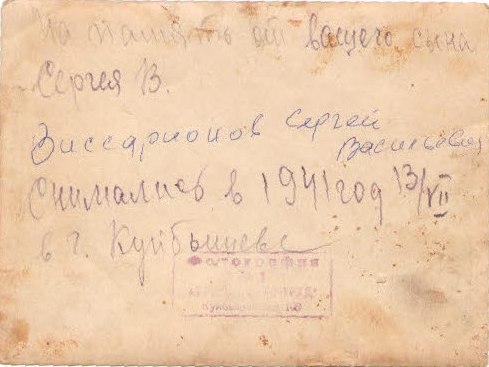 На память от вашего сына
Сергея В.
Виссарионов Сергей
Васильевич
Снимались в 1941 год 13/VII
в г. Куйбышеве
Фотография